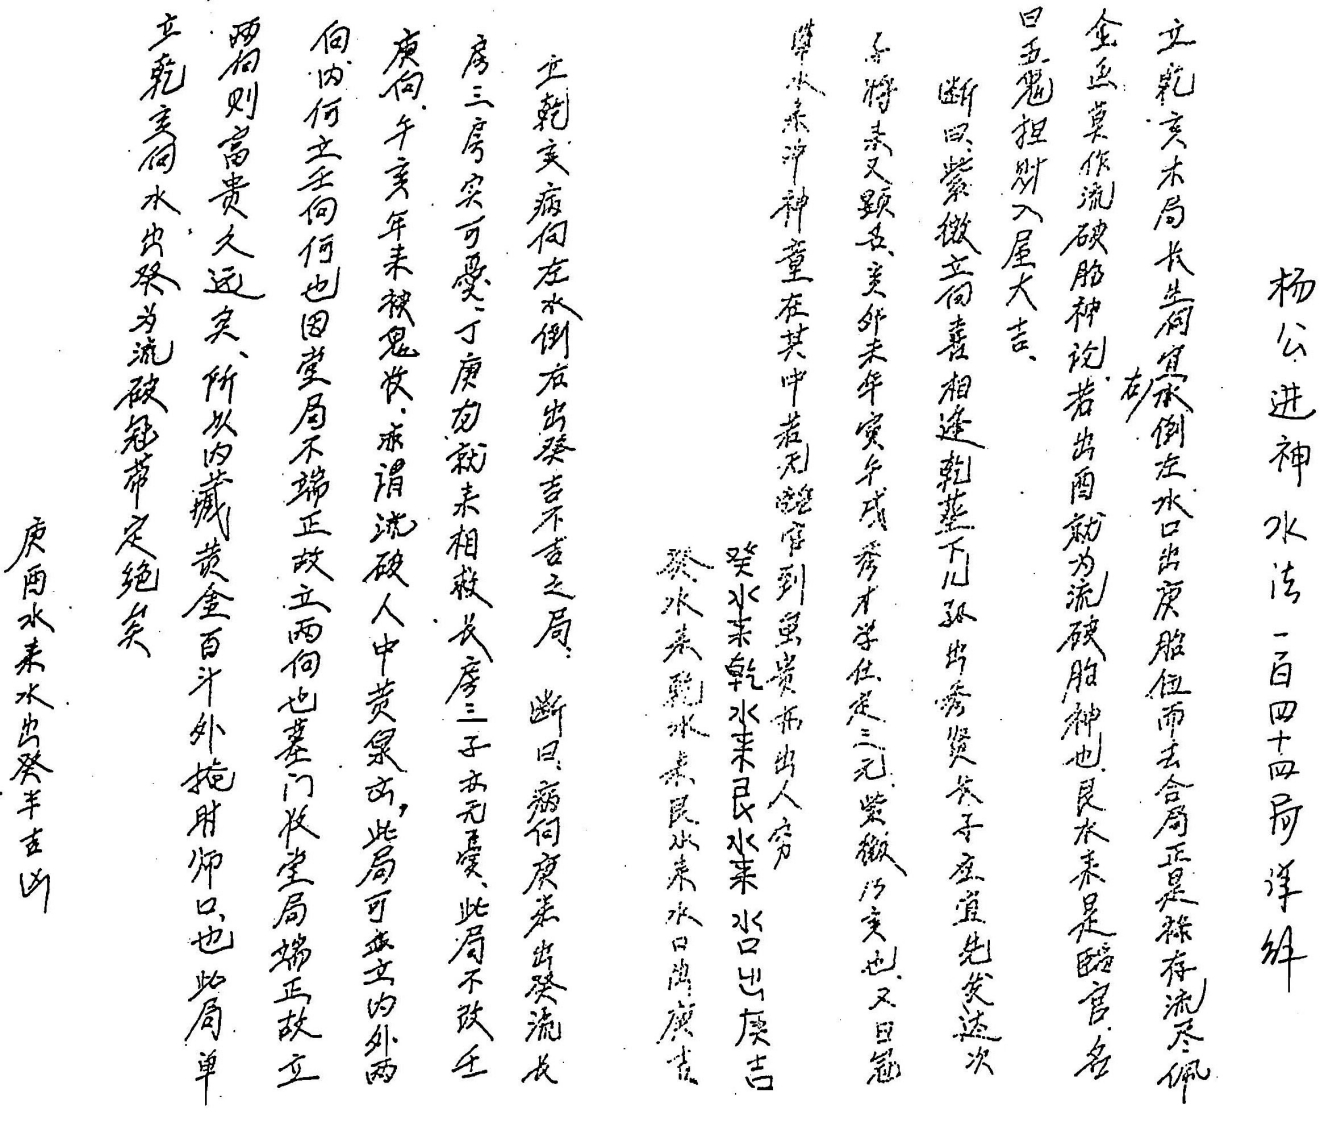 杨公进神水法一百四十四局详解
立乾亥木局长生向宜右水倒左水口出庚胎位而去合局正是禄存流尽佩
金鱼莫作流破胎神论.若出酉就为流破胎神也.艮水来是临官.名
曰五鬼担财入屋大吉.
断曰.紫微立向喜相逢乾葬下儿孙出秀贤长子应宜先发达次
子将来又显名.亥卯未年寅午戌秀才学仕定三元.紫微巧亥也.又曰冠
带水来冲神童在其中若无临官到虽贵亦出人穷
癸水来乾水来艮水来 水口出庚吉
癸水来乾水来艮水来水口出庚吉.
立乾亥病向左水倒右出癸吉不吉之局. 断曰.病向庚来出癸流长
房三房实可忧.丁庚方就来相救长房三子亦无忧.此局不改壬
庚向.午亥年来被鬼收.亦谓流破人中黄泉凶,此局可立内外两
向内何立壬向何也因堂局不端正故立两向也墓门收堂局端正故立
两向则富贵久远矣.所以内藏黄金百斗外掩时师口也此局单
立乾亥向水出癸为流破冠带定绝矣
庚酉水来水出癸半吉凶